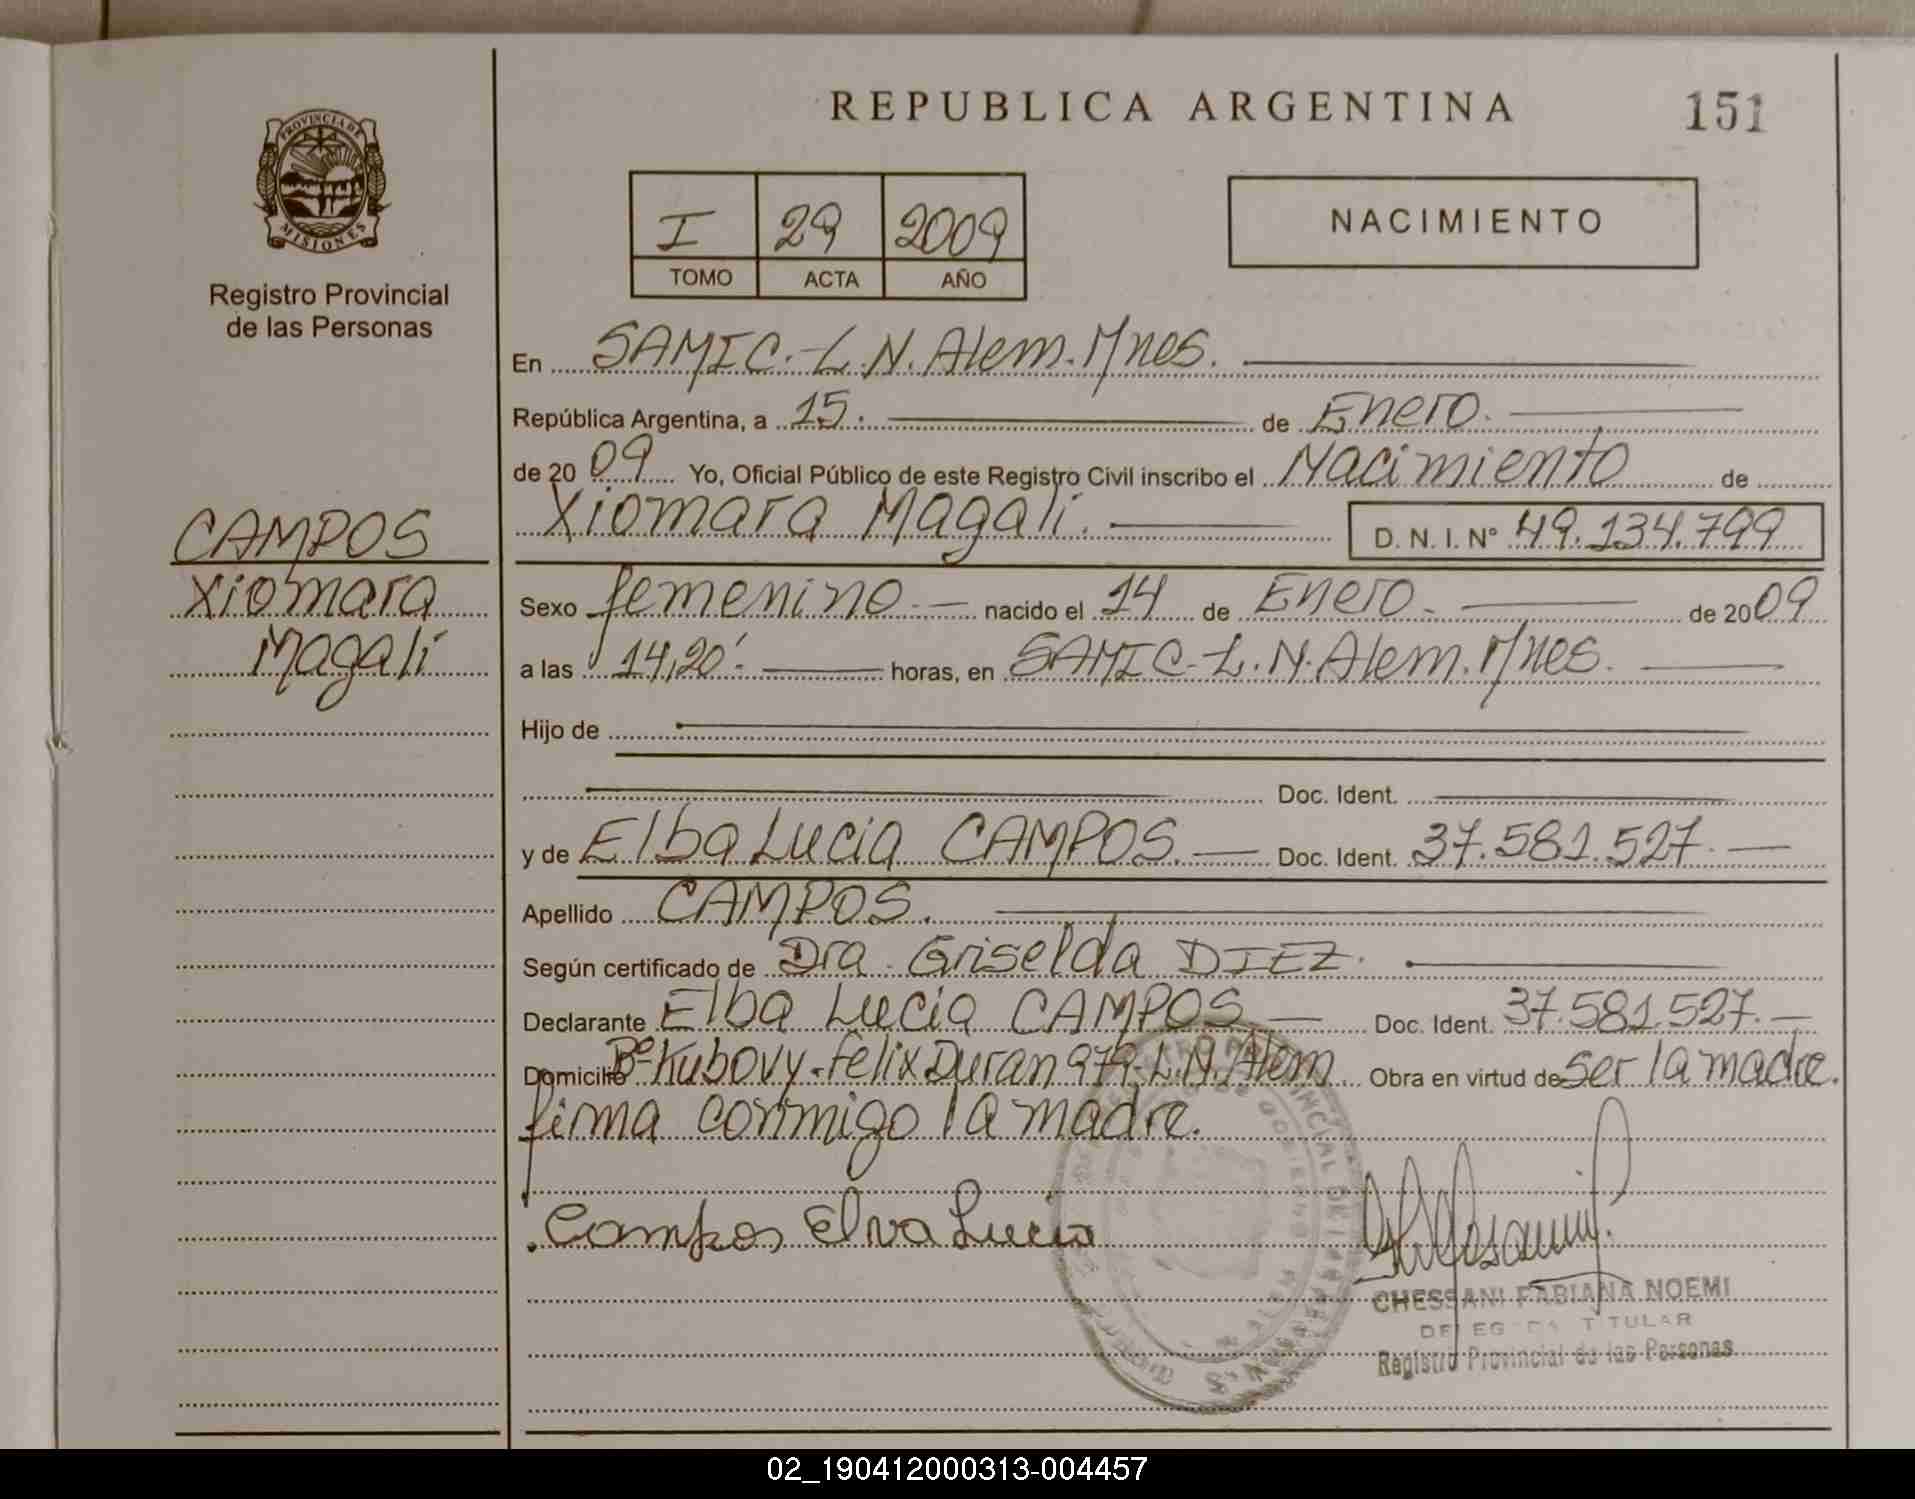 REPUBLICA ARGENTINA
151
PROVINCIA DE
MISIONES
Registro Provincial
de las Personas
I 29 2009
TOMO ACTA AÑO
NACIMIENTO
En SAMIC.-L.N.Alem.Mnes.
República Argentina, a 15. de Enero.
de 2009 Yo, Oficial Público de este Registro Civil inscribo el Nacimiento de
Xiomara Magali. D. N. I. Nº 49.134.799
CAMPOS
Xiomara
Magali
Sexo femenino.- nacido el 14 de Enero.- de 2009
a las 14,20'.- horas, en SAMIC.-L.N.Alem.Mnes.
Hijo de
Doc. Ident.
y de Elba Lucia CAMPOS.- Doc. Ident. 37.581.527.-
Apellido CAMPOS.
Según certificado de Dra. Griselda DIEZ.
Declarante Elba Lucia CAMPOS.- Doc. Ident. 37.581.527.-
Domicilio Bº-Kubovy-Felix Duran 979-L.N.Alem Obra en virtud de ser la madre.
firma conmigo la madre.
Campos Elva Lucia
CHESSANI FABIANA NOEMI
DELEGADA TITULAR
Registro Provincial de las Personas
02_190412000313-004457